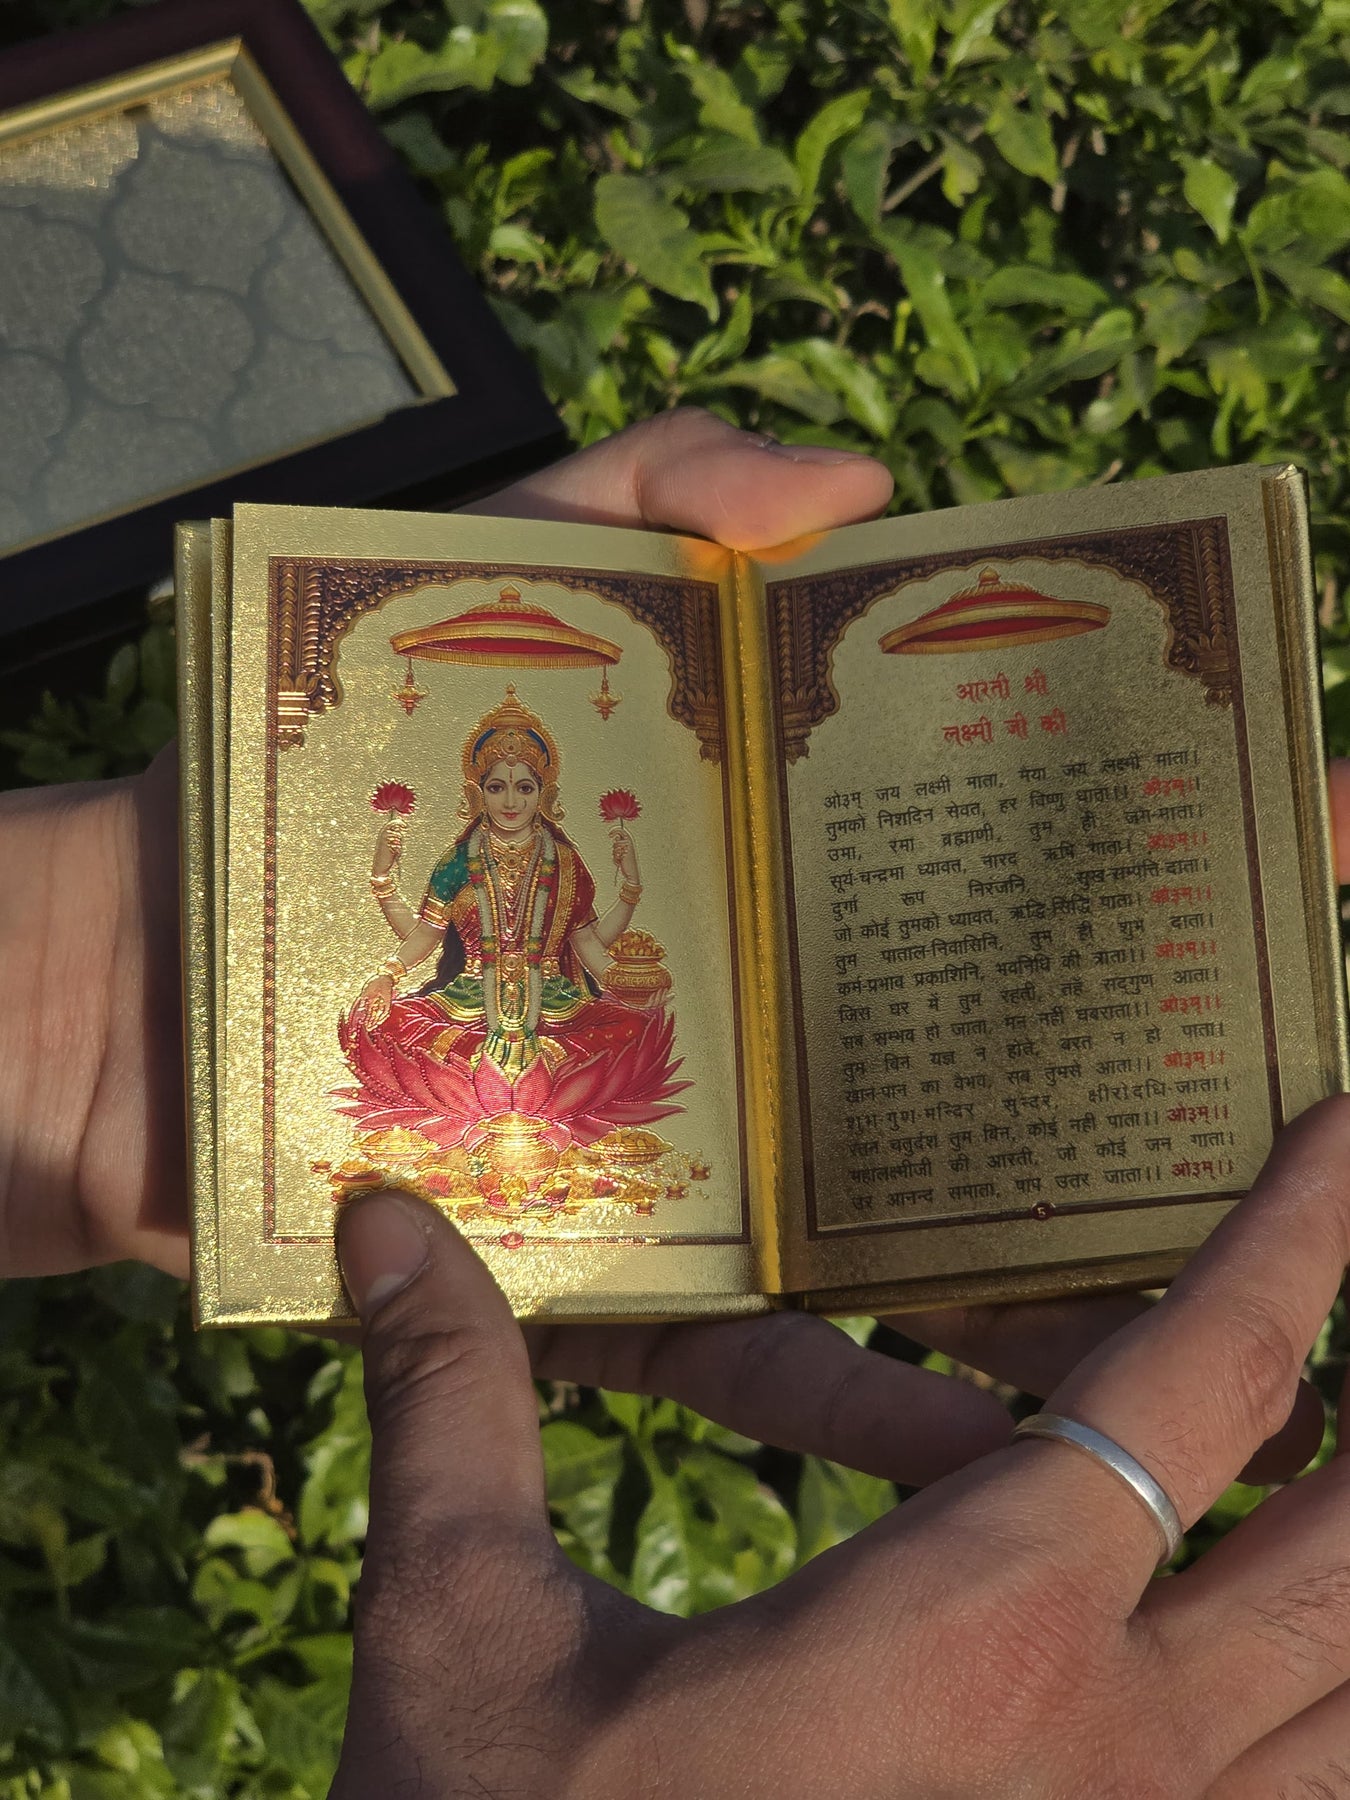 4
आरती श्री
लक्ष्मी जी की
ओ३म् जय लक्ष्मी माता, मैया जय लक्ष्मी माता।
तुमको निशदिन सेवत, हर विष्णु धाता।। ओ३म्।।
उमा, रमा ब्रह्माणी, तुम ही जग-माता।
सूर्य-चन्द्रमा ध्यावत, नारद ऋषि गाता। ओ३म्।।
दुर्गा रूप निरजनि, सुख-सम्पत्ति-दाता।
जो कोई तुमको ध्यावत, ऋद्धि-सिद्धि पाता। ओ३म्।।
तुम पाताल-निवासिनि, तुम ही शुभ दाता।
कर्म-प्रभाव प्रकाशिनि, भवनिधि की त्राता।। ओ३म्।।
जिस घर में तुम रहती, तहँ सद्‌गुण आता।
सब सम्भव हो जाता, मन नहीं घबराता।। ओ३म्।।
तुम बिन यज्ञ न होते, बरत न हो पाता।
खान-पान का वैभव, सब तुमसे आता।। ओ३म्।।
शुभ-गुण-मन्दिर सुन्दर, क्षीरोदधि-जाता।
रतन चतुर्दश तुम बिन, कोई नही पाता।। ओ३म्।।
महालक्ष्मीजी की आरती, जो कोई जन गाता।
उर आनन्द समाता, पाप उतर जाता।। ओ३म्।।
5